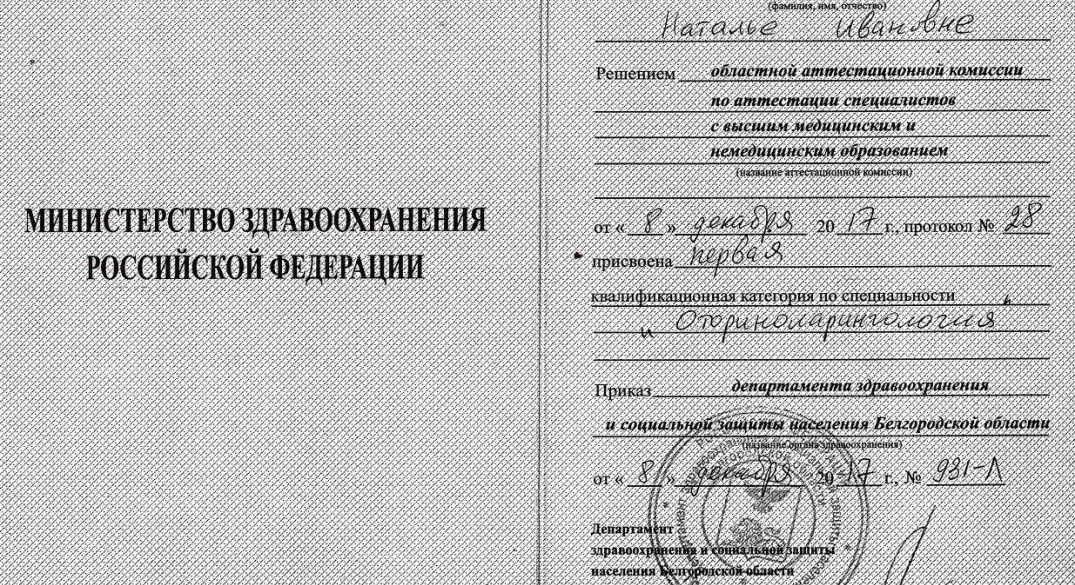 МИНИСТЕРСТВО ЗДРАВООХРАНЕНИЯ
РОССИЙСКОЙ ФЕДЕРАЦИИ
(фамилия, имя, отчество)
Наталье Ивановне
Решением областной аттестационной комиссии
по аттестации специалистов
с высшим медицинским и
немедицинским образованием
(название аттестационной комиссии)
от « 8 » декабря 20 17 г., протокол № 28
присвоена первая
квалификационная категория по специальности
„ Оториноларингология “
Приказ департамента здравоохранения
и социальной защиты населения Белгородской области
(название органа здравоохранения)
от « 8 » декабря 20 17 г., № 931-Л
Департамент
здравоохранения и социальной защиты
населения Белгородской области